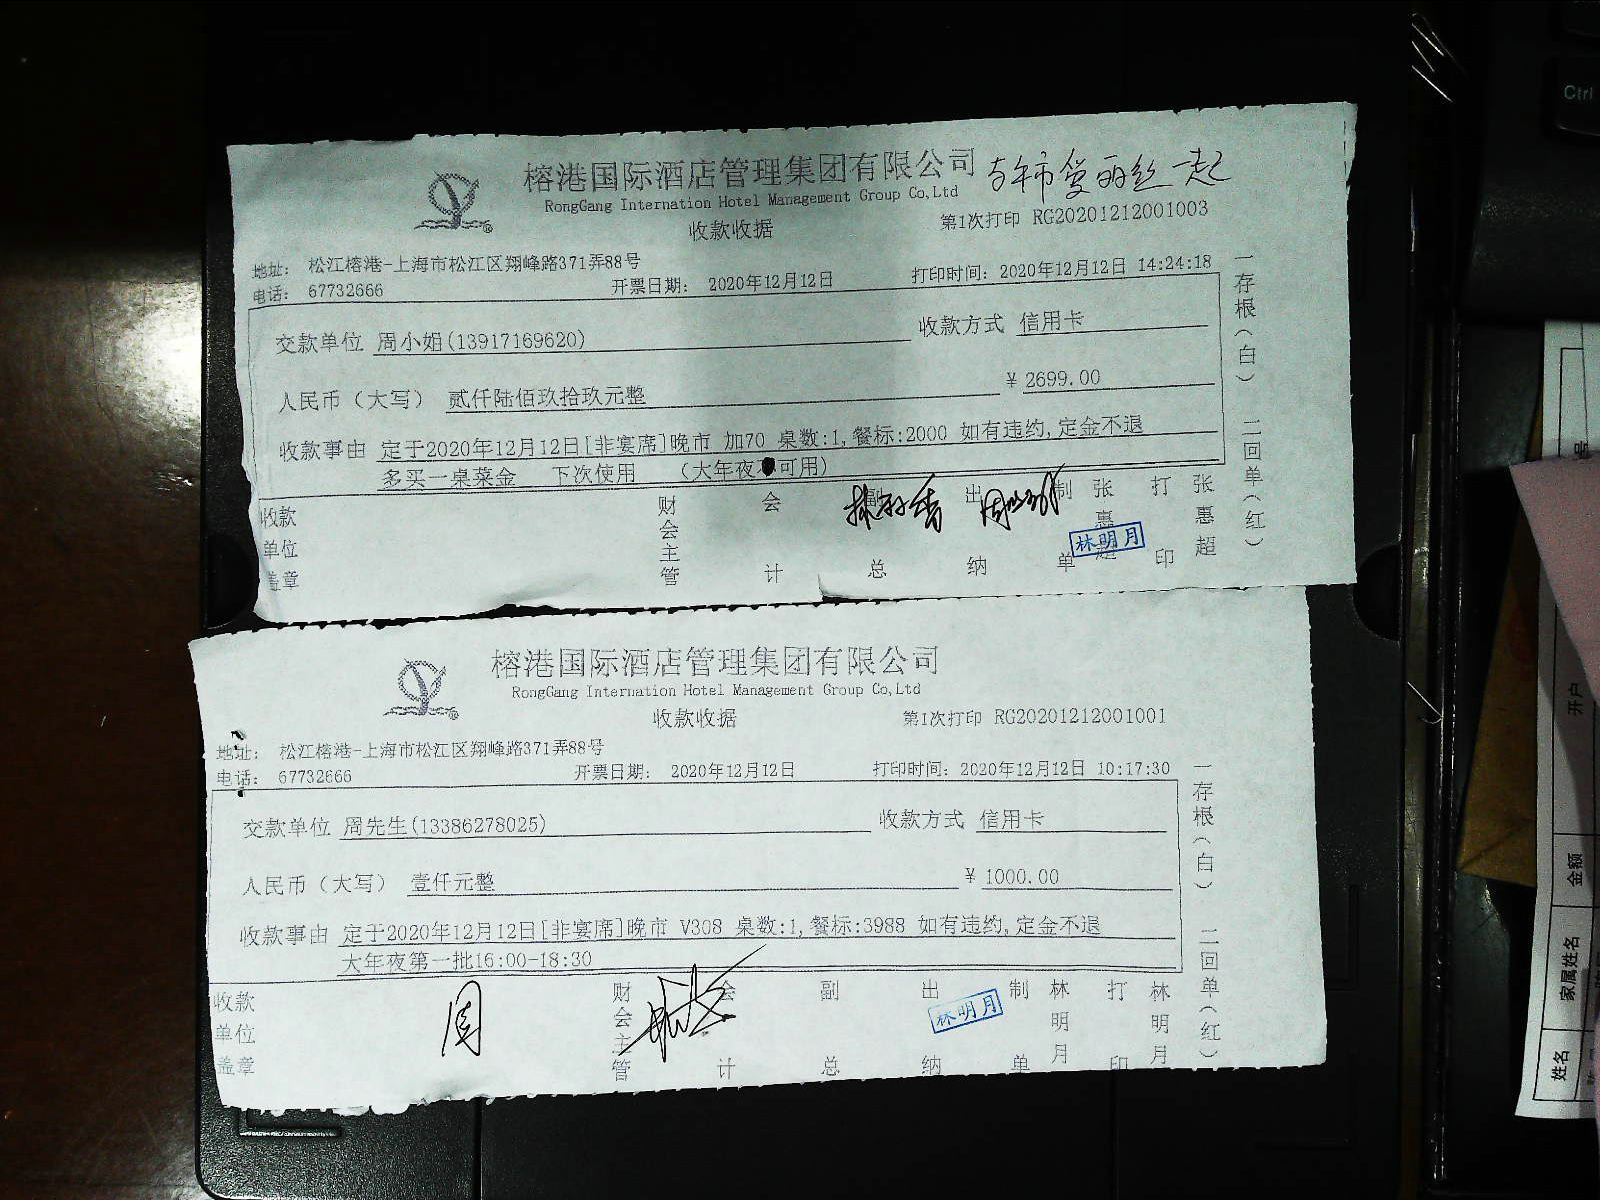 榕港国际酒店管理集团有限公司 与午市爱丽丝一起
RongGang Internation Hotel Management Group Co,Ltd
收款收据 第1次打印 RG20201212001003
地址: 松江榕港-上海市松江区翔峰路371弄88号
电话: 67732666 开票日期: 2020年12月12日 打印时间: 2020年12月12日 14:24:18
交款单位 周小姐(13917169620) 收款方式 信用卡
人民币(大写) 贰仟陆佰玖拾玖元整 ¥ 2699.00
收款事由 定于2020年12月12日[非宴席]晚市 加70 桌数:1,餐标:2000 如有违约,定金不退
多买一桌菜金 下次使用 (大年夜 可用)
收款单位盖章 财会主管 会计 副总 出纳 制单 张惠超 打印 张惠超
林明月
一存根(白) 二回单(红)
榕港国际酒店管理集团有限公司
RongGang Internation Hotel Management Group Co,Ltd
收款收据 第1次打印 RG20201212001001
地址: 松江榕港-上海市松江区翔峰路371弄88号
电话: 67732666 开票日期: 2020年12月12日 打印时间: 2020年12月12日 10:17:30
交款单位 周先生(13386278025) 收款方式 信用卡
人民币(大写) 壹仟元整 ¥ 1000.00
收款事由 定于2020年12月12日[非宴席]晚市 V308 桌数:1,餐标:3988 如有违约,定金不退
大年夜第一批16:00-18:30
收款单位盖章 周 财会主管 会计 副总 出纳 制单 林明月 打印 林明月
林明月
一存根(白) 二回单(红)
Ctrl
号
开户
金额
家属姓名
姓名